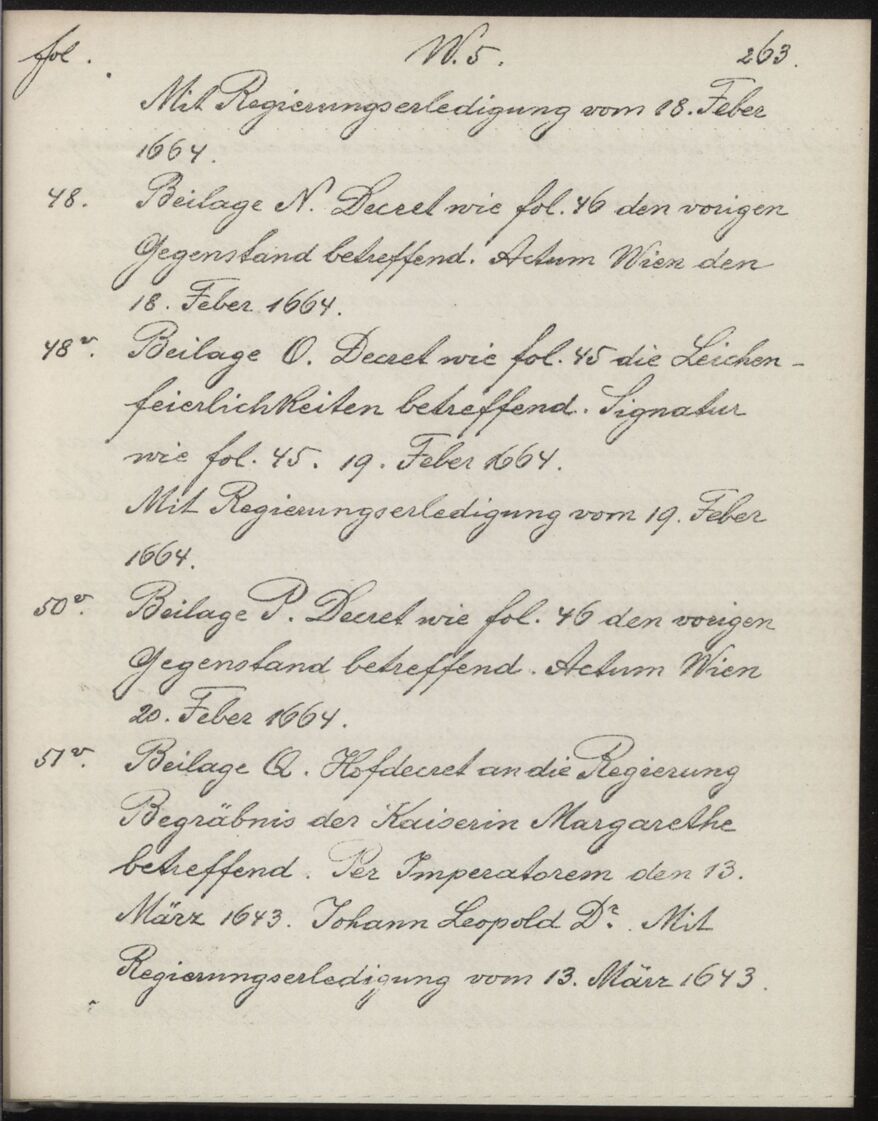 fol. W.5. 263.
Mit Regierungserledigung vom 18. Feber
1664.
48. Beilage N. Decret wie fol. 46 den vorigen
Gegenstand betreffend. Actum Wien den
18. Feber 1664.
48v. Beilage O. Decret wie fol. 45 die Leichen-
feierlichkeiten betreffend. Signatur
wie fol. 45. 19. Feber 1664.
Mit Regierungserledigung vom 19. Feber
1664.
50v. Beilage P. Decret wie fol. 46 den vorigen
Gegenstand betreffend. Actum Wien
20. Feber 1664.
51v. Beilage Q. Hofdecret an die Regierung
Begräbnis der Kaiserin Margarethe
betreffend. Per Imperatorem den 13.
März 1643. Johann Leopold Dr. Mit
Regierungserledigung vom 13. März 1643.